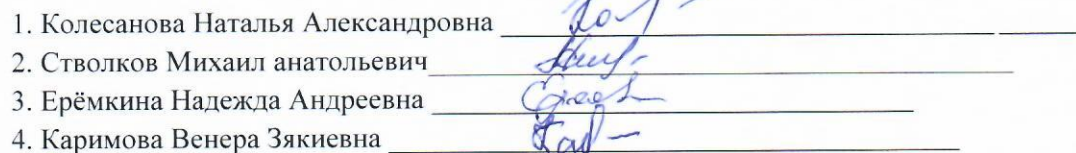 1. Колесанова Наталья Александровна
2. Стволков Михаил анатольевич
3. Ерёмкина Надежда Андреевна
4. Каримова Венера Зякиевна